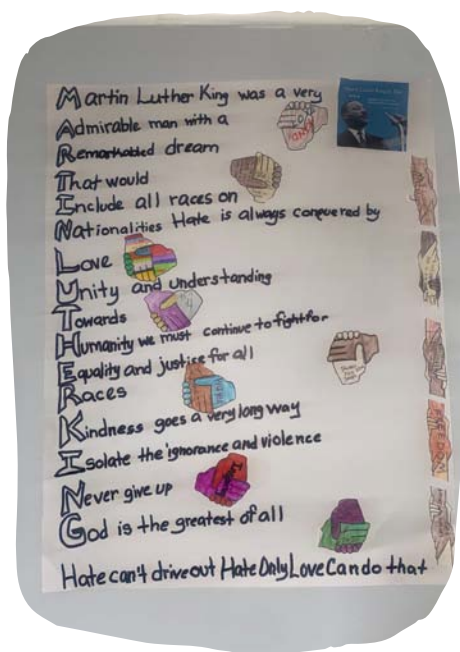 Martin Luther King was a very
Admirable man with a
Remarkabled dream
That would
Include all races on
Nationalities Hate is always conquered by
Love
Unity and understanding
Towards
Humanity we must continue to fight for
Equality and justice for all
Races
Kindness goes a very long way
Isolate the ignorance and violence
Never give up
God is the greatest of all
Hate can't drive out Hate Only Love Can do that
FREEDOM